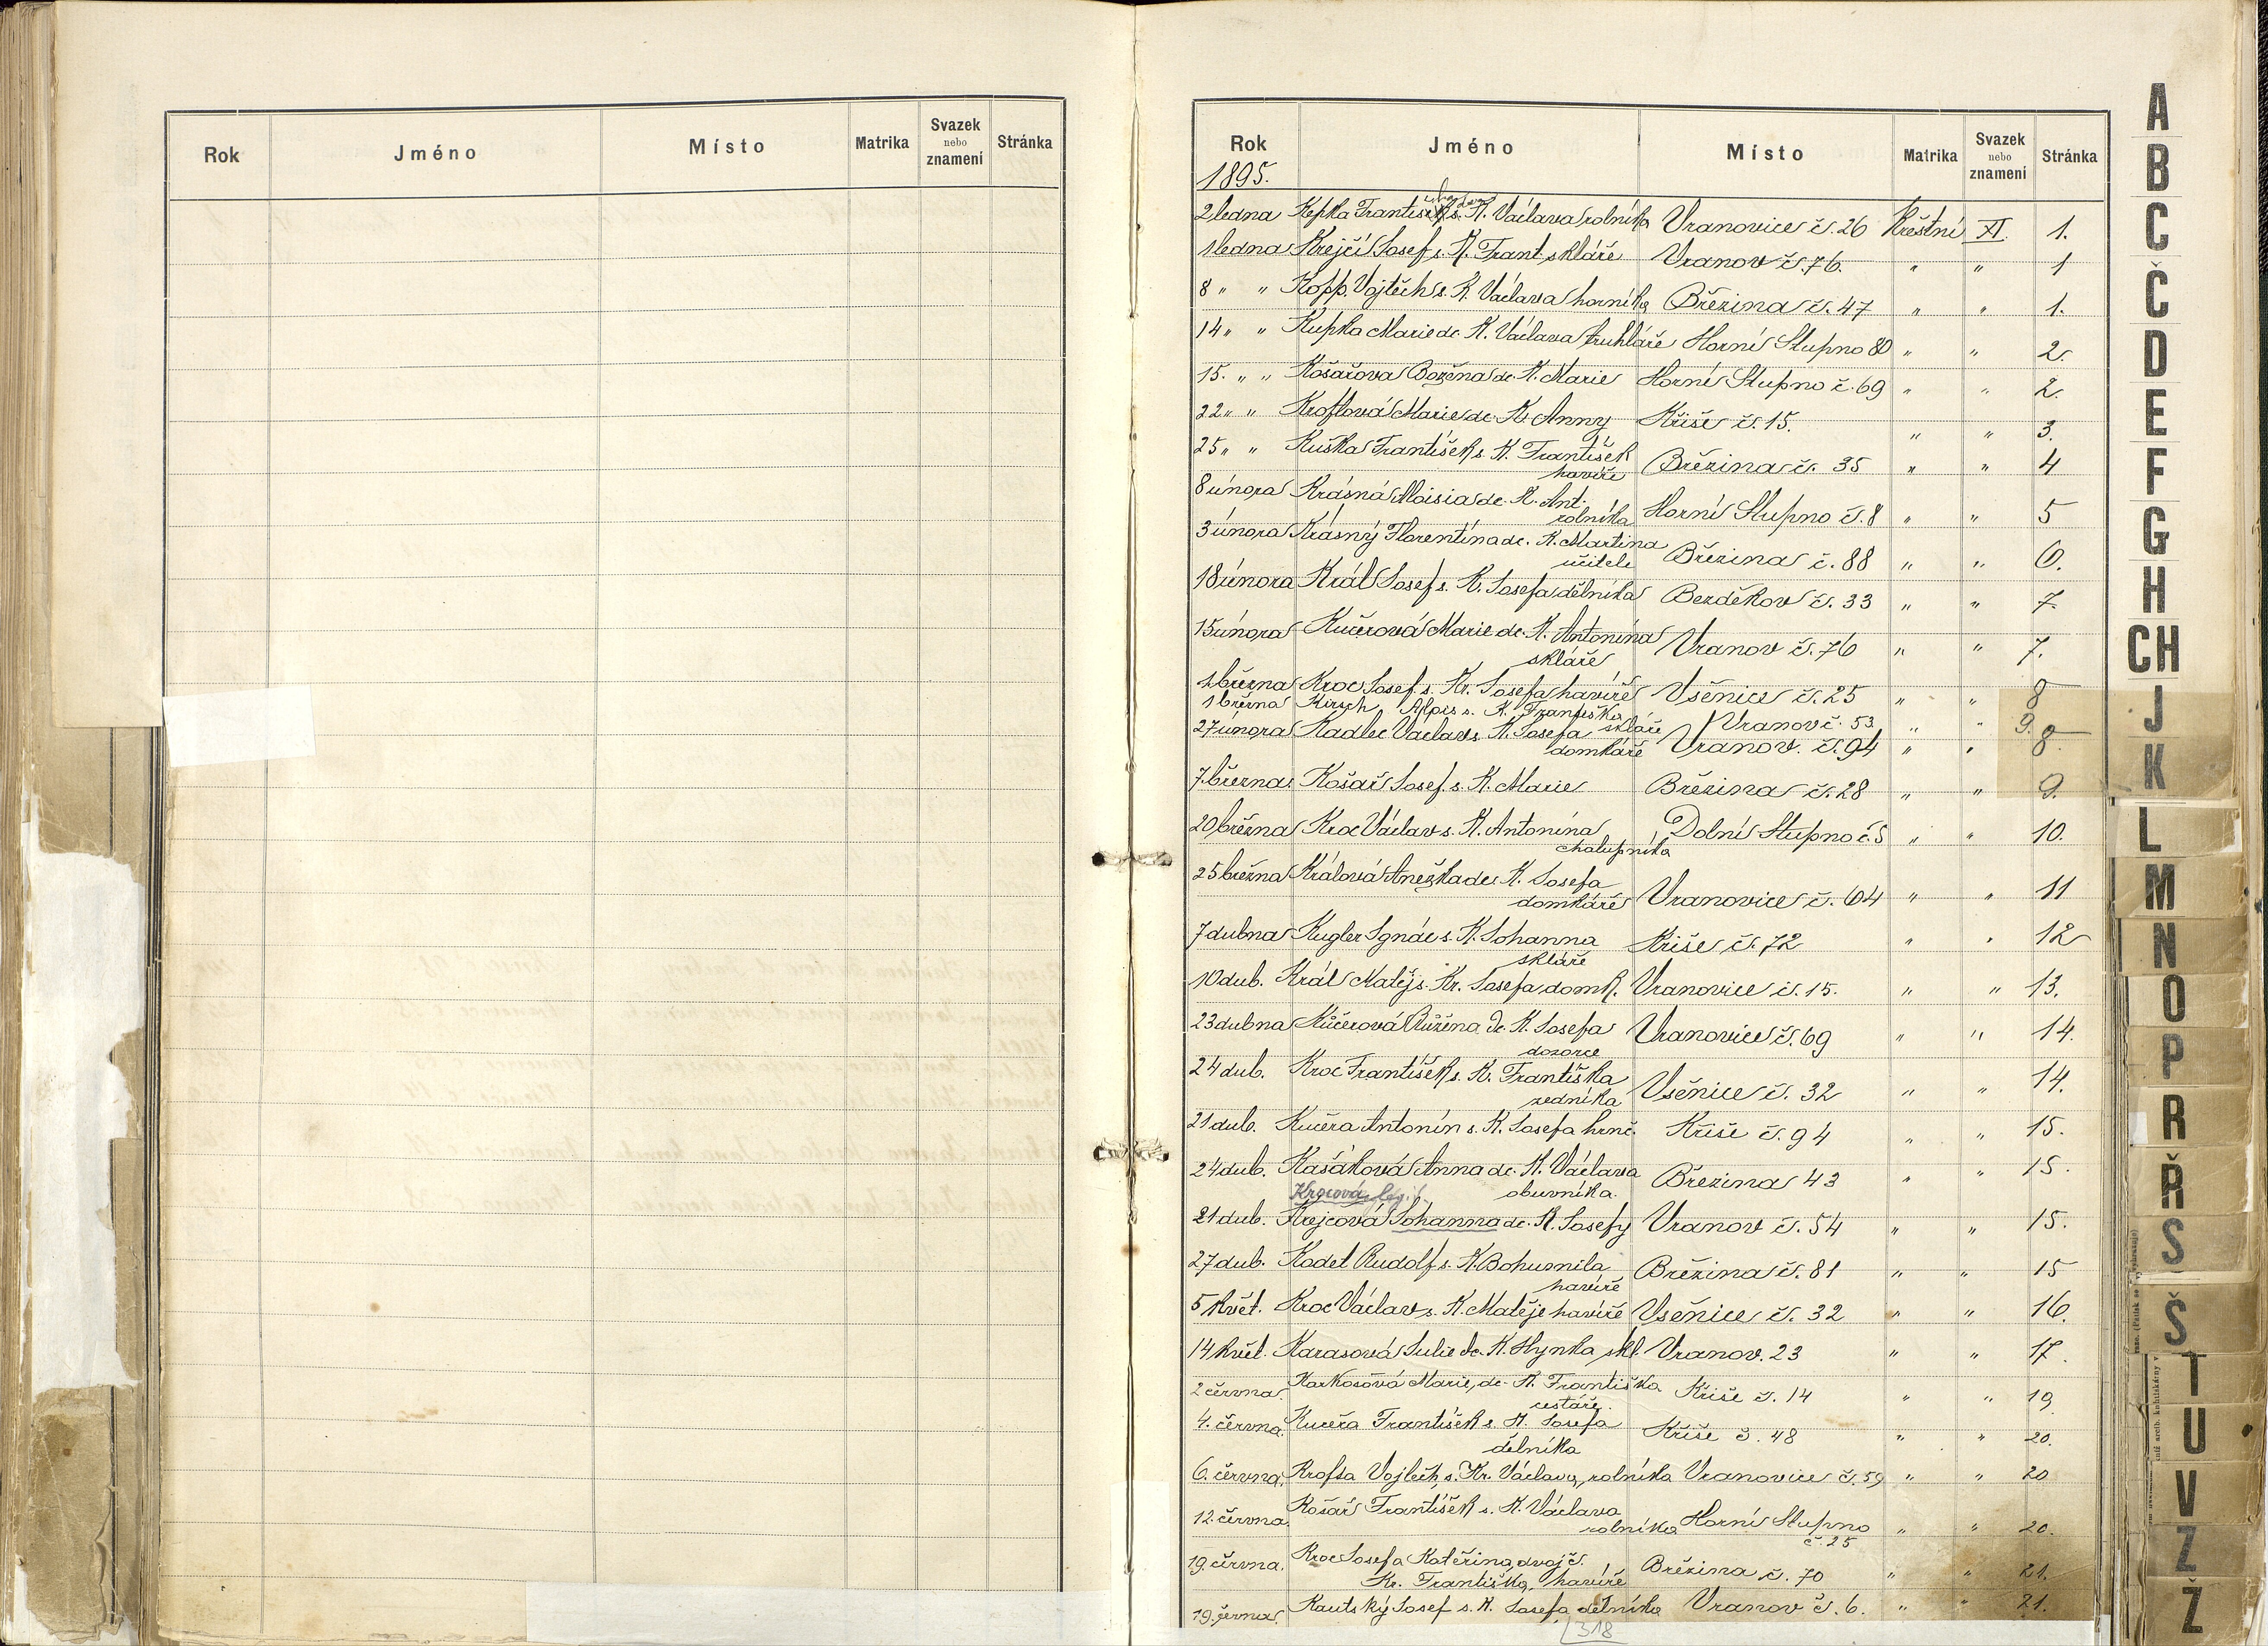 Rok Jméno Místo Matrika Svazek nebo znamení Stránka
Rok Jméno Místo Matrika Svazek nebo znamení Stránka
1895.
2 ledna Kepka František s. K. Václava rolníka Vranovice č. 26 Křestní XI. 1.
1 ledna Krejčí Josef s. K. Frant. skláře Vranov č. 76. " " 1
8 " " Kopp. Vojtěch s. K. Václava horníka Březina č. 47 " " 1.
14 " " Kupka Marie dc. K. Václava truhláře Horní Stupno 80 " " 2.
15. " " Košařova Božena dc. K. Marie Horní Stupno č. 69 " " 2.
22 " " Kroftová Marie dc. K. Anny Kříše č. 15. " " 3.
25 " " Kuška František s. K. František
havíře Březina č. 35 " " 4
8 února Krásná Aloisia dc. K. Ant.
rolníka Horní Stupno č. 8 " " 5
3 února Krásný Florentína dc. K. Martina
učitele Březina č. 88 " " 6.
18 února Král Josef s. K. Josefa dělníka Bezděkov č. 33 " " 7.
15 února Kučerová Marie dc. K. Antonína
skláře Vranov č. 76 " " 7.
1. března Kroc Josef s. Kr. Josefa havíře Všenice č. 25 " " 8
1 března Kirsch Alois s. K. Františka skláře Vranov č. 53 " " 9.
27 února Kadlec Václav s. K. Josefa
domkáře Vranov. č. 94 " " 8.
7. března Košař Josef s. K. Marie Březina č. 28 " " 9.
20 března Kroc Václav s. K. Antonína
chalupníka Dolní Stupno č. 5 " " 10.
25 března Králová Anežka dc. K. Josefa
domkáře Vranovice č. 64 " " 11
7 dubna Kugler Ignác s. K. Johanna
skláře Kříše č. 72 " " 12
10 dub. Král Matěj s. Kr. Josefa, domk. Vranovice č. 15. " " 13.
23 dubna Kučerová Růžena dc. K. Josefa
dozorce Vranovice č. 69 " " 14.
24 dub. Kroc František s. K. Františka
zedníka Všenice č. 32 " " 14.
21 dub. Kučera Antonín s. K. Josefa hrnč. Kříše č. 94 " " 15.
24 dub. Kašáková Anna dc. K. Václava
obuvníka. Březina 43 " " 15.
Krocová leg.!
21 dub. Krejcová Johanna dc. K. Josefy Vranov č. 54 " " 15.
27 dub. Kodet Rudolf s. K. Bohumila
havíře Březina č. 81 " " 15
5 květ. Kroc Václav s. K. Matěje havíře Všenice č. 32 " " 16.
14 květ. Karasová Julie dc. K. Hynka skl. Vranov. 23 " " 17.
2 června Karkošová Marie, dc. K. Františka
cestáře. Kříše č. 14 " " 19
4. června. Kučera František s. K. Josefa
dělníka Kříše č. 48 " " 20.
6. června. Krofta Vojtěch s. Kr. Václava, rolníka Vranovice č. 59 " " 20
12. června. Košař František s. K. Václava
rolníka Horní Stupno
č. 25 " " 20.
19. června. Kroc Josefa Kateřina, dvojč.
Kr. Františka, havíře Březina č. 70 " " 21.
19. června Kautský Josef s. K. Josefa dělníka Vranov č. 6. " " 21.
318
A
B
C
Č
D
E
F
G
H
CH
J
K
L
M
N
O
P
R
Ř
S
Š
T
U
V
Z
Ž